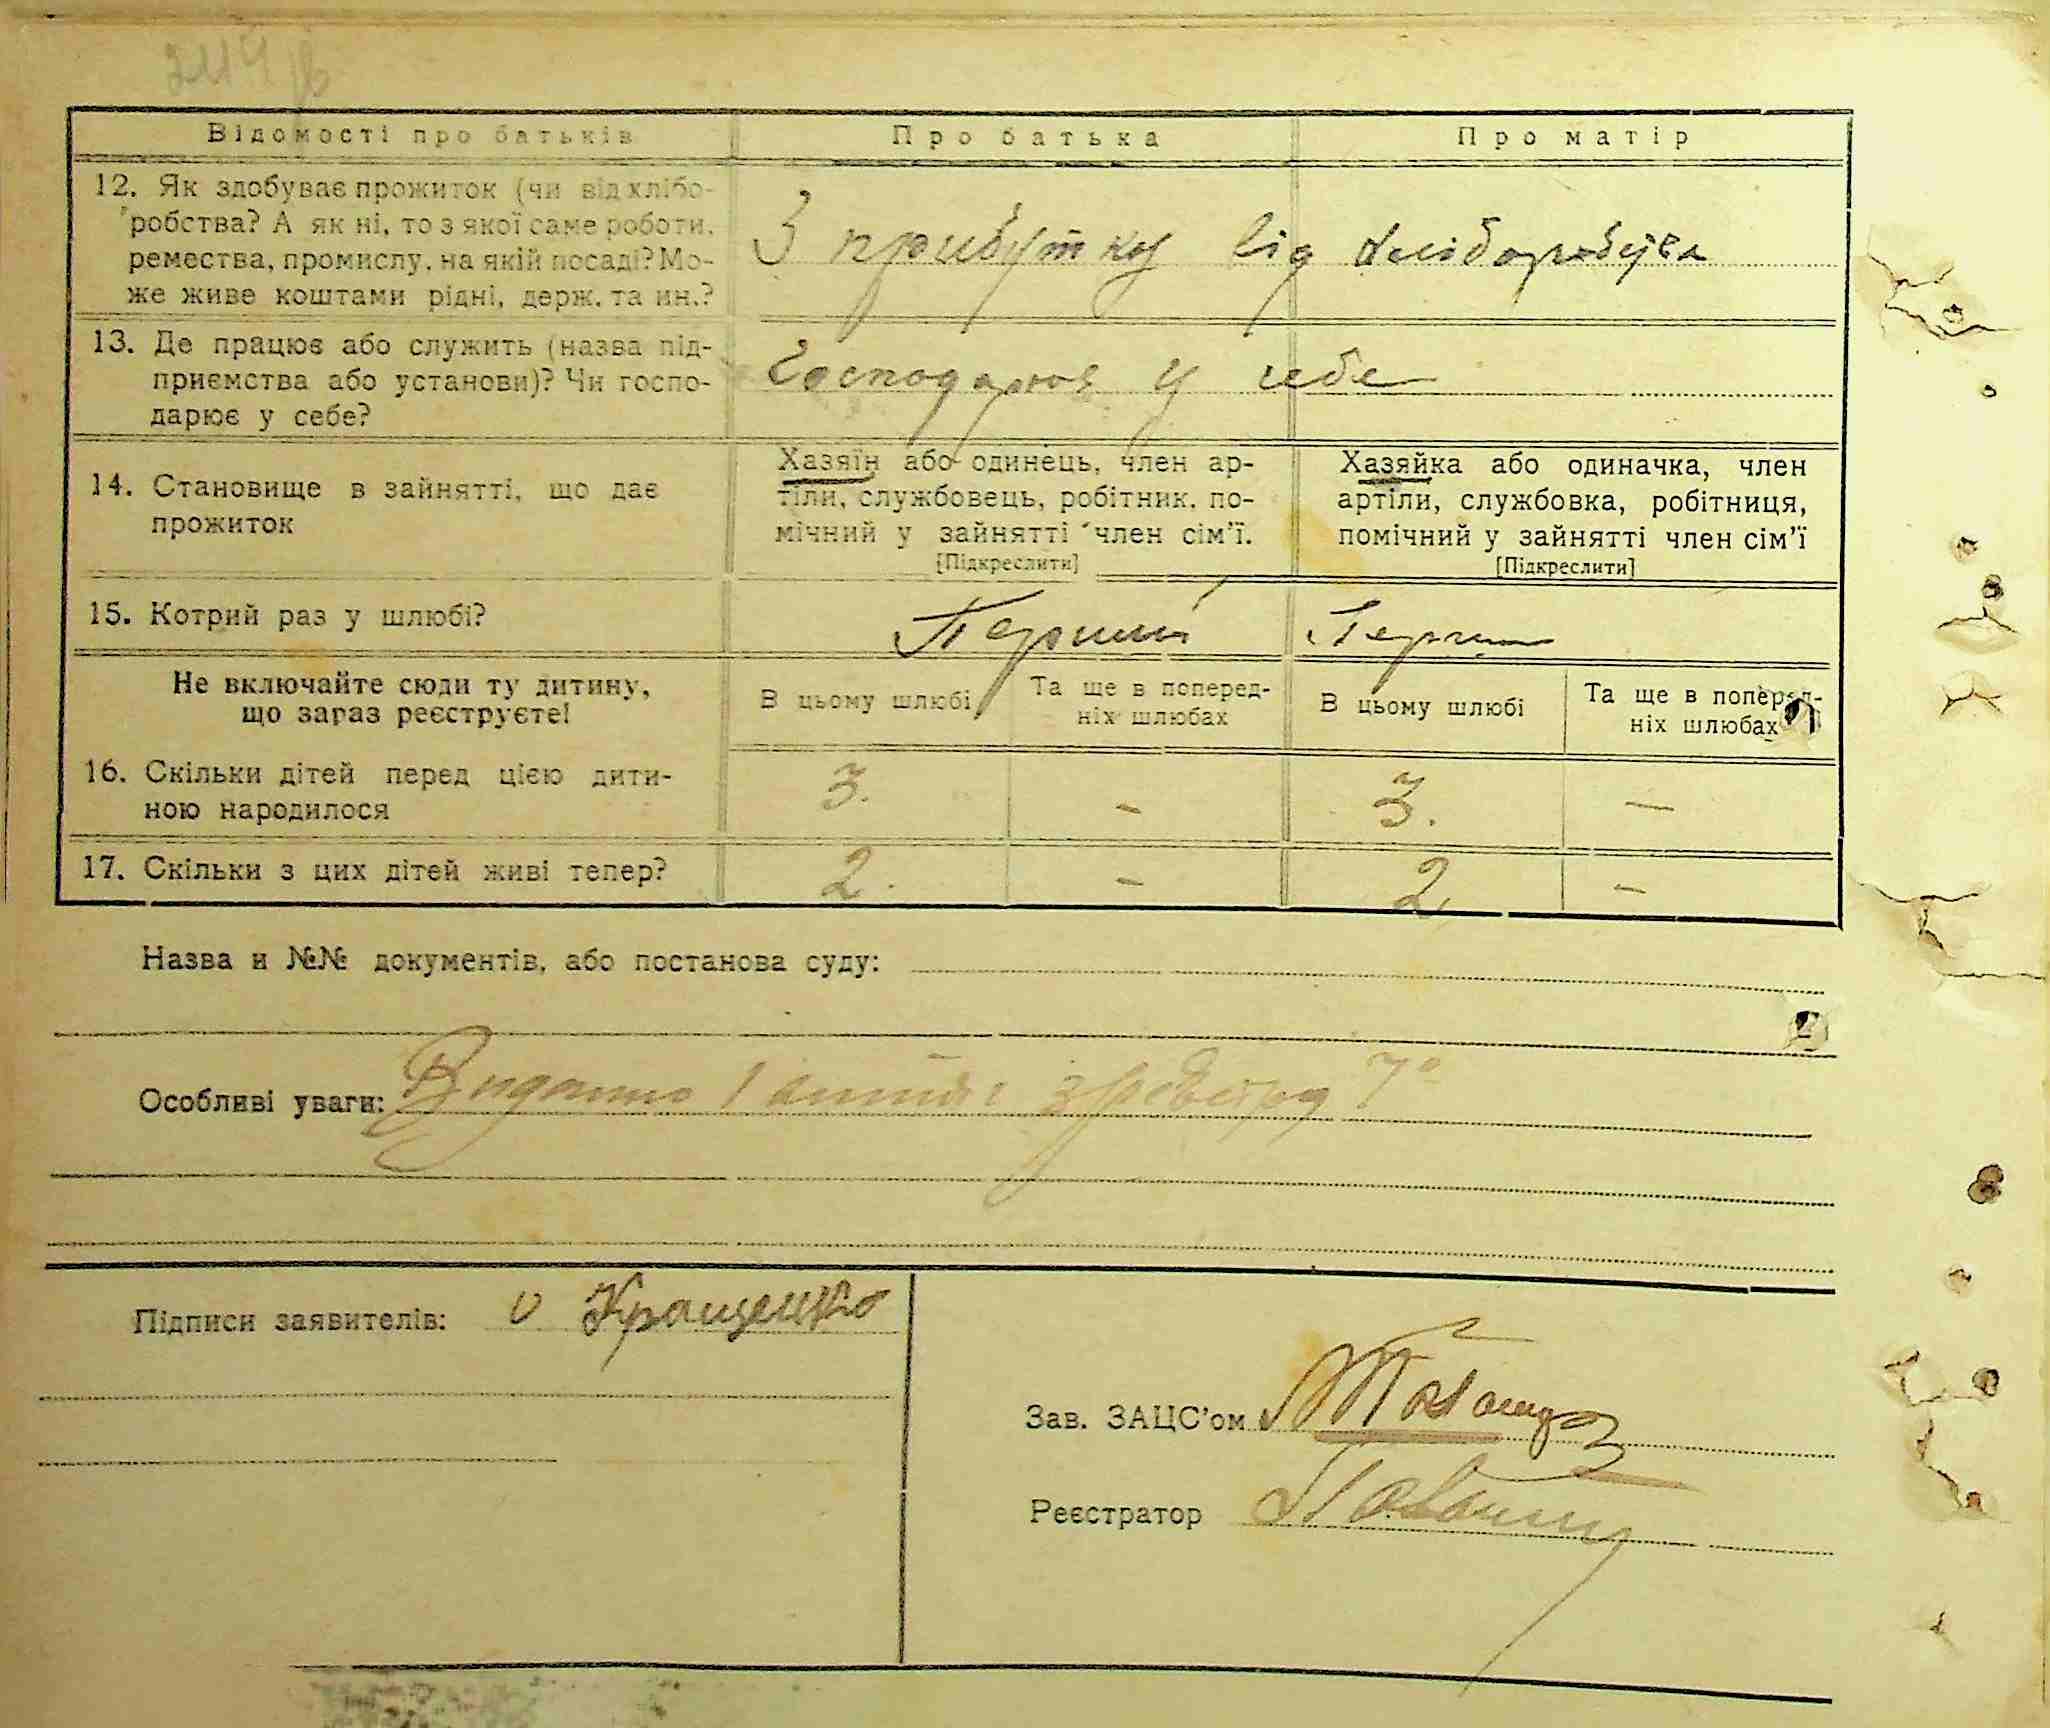 Відомості про батьків
Про батька
Про матір
12. Як здобуває прожиток (чи від хлібо-
робства? А як ні, то з якої саме роботи,
ремества, промислу, на якій посаді? Мо-
же живе коштами рідні, держ. та ин.?
З прибутку від хліборобства
13. Де працює або служить (назва під-
приємства або установи)? Чи госпо-
дарює у себе?
Господарює у себе
14. Становище в зайнятті, що дає
прожиток
Хазяїн або одинець, член ар-
тіли, службовець, робітник, по-
мічний у зайнятті член сім'ї.
[Підкреслити]
Хазяйка або одиначка, член
артіли, службовка, робітниця,
помічний у зайнятті член сім'ї
[Підкреслити]
15. Котрий раз у шлюбі?
Перший
Перший
Не включайте сюди ту дитину,
що зараз реєструєте!
В цьому шлюбі
Та ще в поперед-
ніх шлюбах
В цьому шлюбі
Та ще в поперед-
ніх шлюбах
16. Скільки дітей перед цією дити-
ною народилося
3. - 3. -
17. Скільки з цих дітей живі тепер?
2. - 2 -
Назва и №№ документів, або постанова суду:
Особливі уваги: Видано 1
Підписи заявителів: Кращенко
Зав. ЗАЦС'ом
Реєстратор